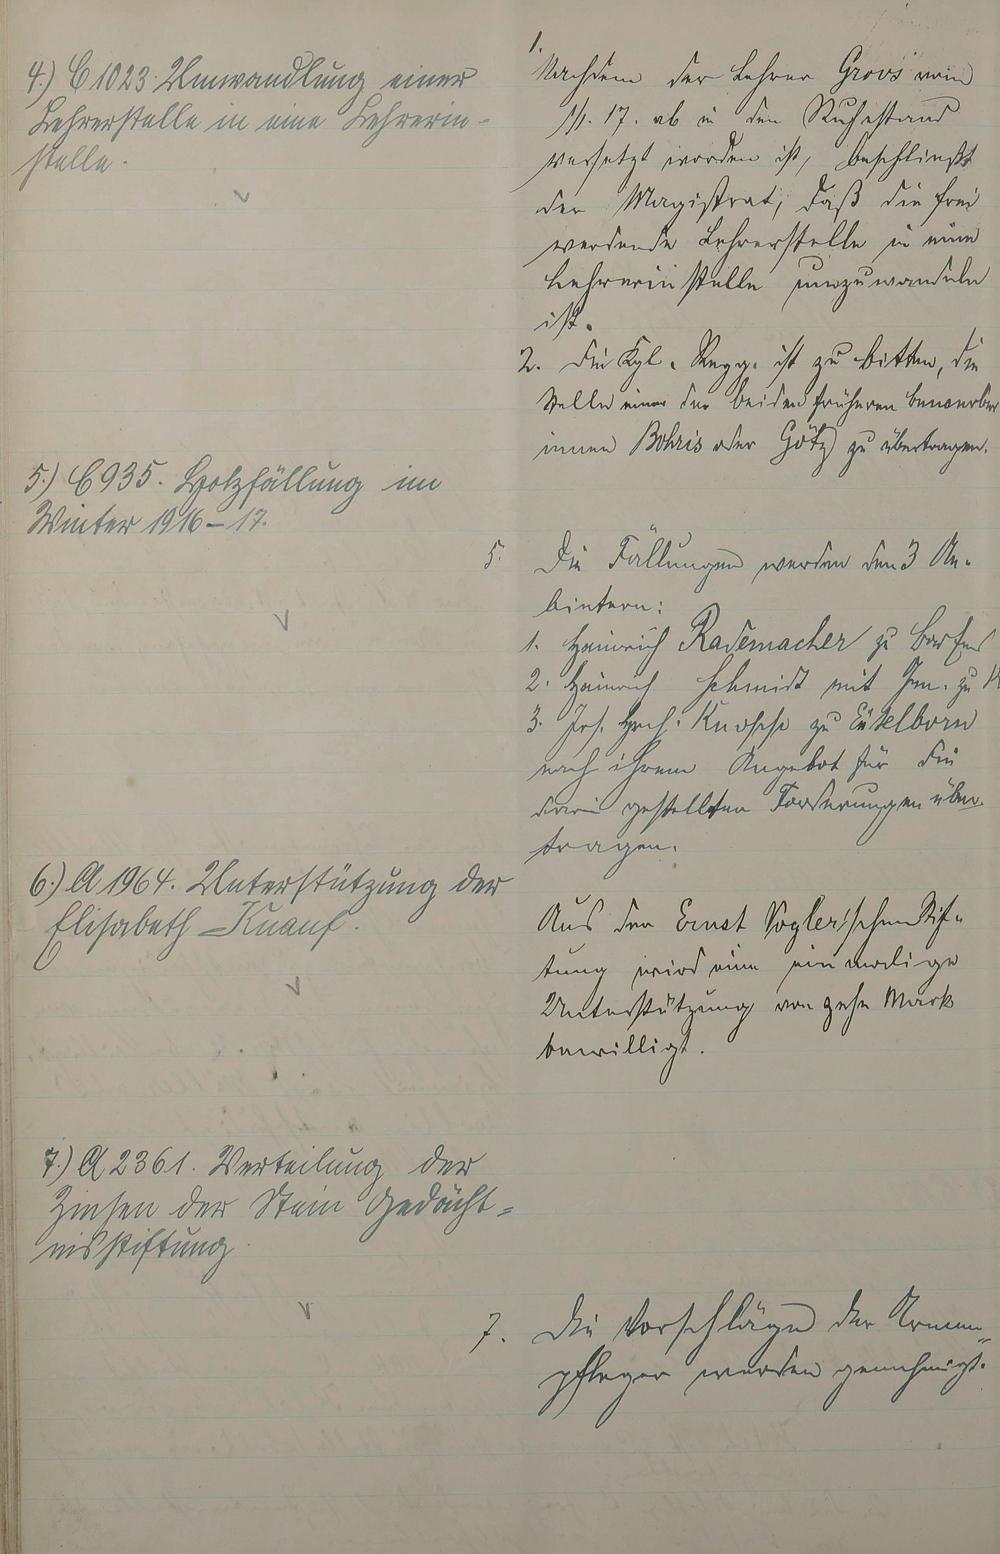 4.) C 1023 Umwandlung einer
Lehrerstelle in eine Lehrerin-
stelle.
1.
Nachdem der Lehrer vom
1/1. 17. ab in den Ruhestand
versetzt worden ist, beschließt
der Magistrat, daß die frei
werdende Lehrerstelle in eine
Lehrerinstelle umzuwandeln
ist.
2. Die Kgl. Regg. ist zu bitten, die
Stelle einer der beiden früheren Bewerber
innen Bohris oder Götz zu übertragen.
5.) C 935. Holzfällung im
Winter 1916–17.
5. Die Fällungen werden den 3 An-
bietern:
1. Heinrich Rademacher zu
2. Heinrich Schmidt mit Gen. zu
3. Jos. Hrch. Knoche zu
nach ihrem Angebot für die
gestellten Forderungen über-
tragen.
6.) A 1964. Unterstützung der
Elisabeth Knauf.
Aus der Ernst Vogler'schen Stif-
tung wird eine einmalige
Unterstützung von zehn Mark
bewilligt.
7.) A 2361. Verteilung der
Zinsen der Stein Gedächt-
nisstiftung.
7. Die Vorschläge der Armen-
pfleger werden genehmigt.